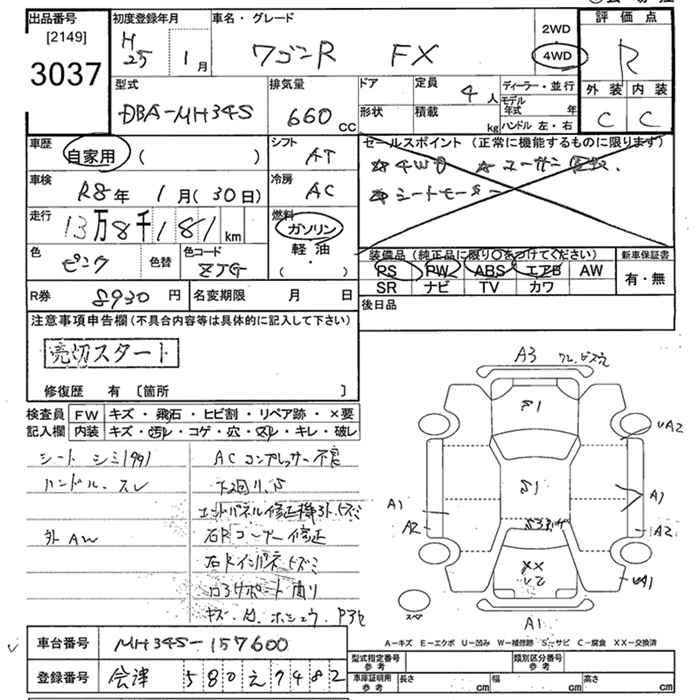 出品番号
[2149]
3037
初度登録年月
H
25 1月
車名・グレード
ワゴンR FX
2WD
4WD
評価点
R
外装 内装
C C
型式
DBA-MH34S
排気量
660 CC
ドア
形状
定員 4人
積載 kg
ディーラー・並行
モデル年式 年
ハンドル 左・右
車歴
自家用 ( )
シフト
AT
セールスポイント (正常に機能するものに限ります)
シートヒーター
車検
R8年 1月(30日)
冷房
AC
走行
13万8千181km
燃料
ガソリン
軽油
( ・ )
色
ピンク
色替
色コード
ZTG
装備品 (純正品に限り○をつけてください)
PS PW ABS エアB AW
SR ナビ TV カワ
新車保証書
有・無
R券 8930円
名変期限 月 日
後日品
注意事項申告欄 (不具合内容等は具体的に記入して下さい)
売切スタート
修復歴 有 〔箇所 〕
検査員 FW キズ・飛石・ヒビ割・リペア跡・×要
記入欄 内装 キズ・汚レ・コゲ・穴・スレ・キレ・破レ
シート シミ
ハンドル、スレ
外 AW
ACコンプレッサー不良
下回り、S
石Rコーナー修正
A3
S1
UA2
S1
A1
A2
A1
A2
XX
UA1
スペア
A1
A-キズ E-エクボ U-凹み W-補修跡 S-サビ C-腐食 XX-交換済
車台番号 MH34S-157600
登録番号 会津 580 え 7482
型式指定番号 参考
類別区分番号 参考
車庫証明用 参考 長さ cm 幅 cm 高さ cm